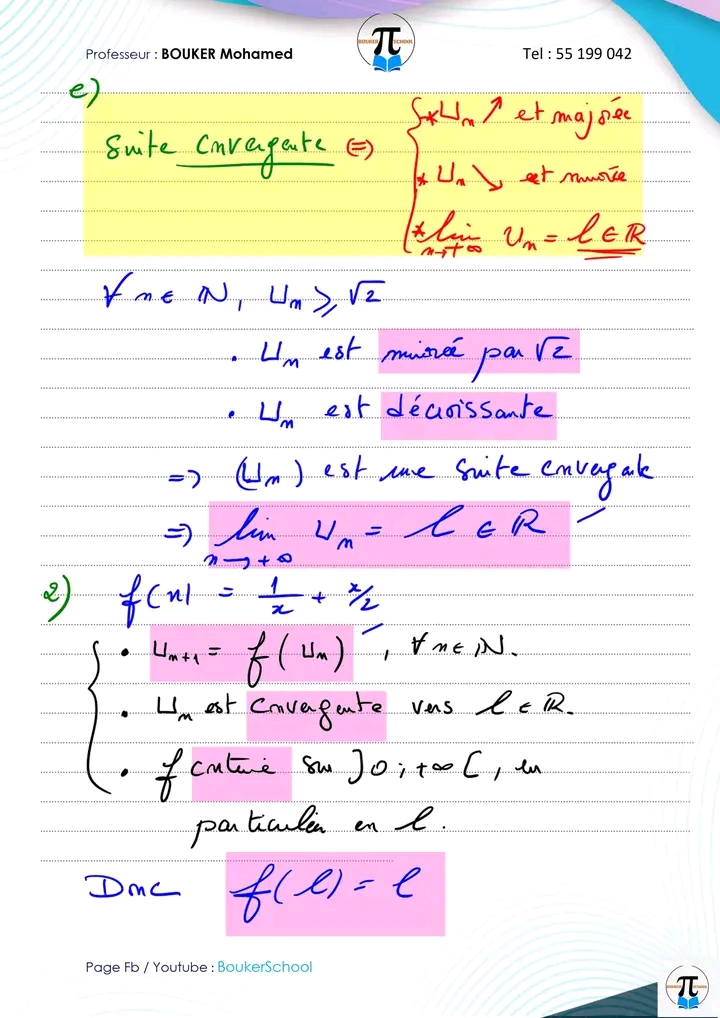 Professeur : BOUKER Mohamed
BOUKER π SCHOOL
Tel : 55 199 042
e)
Suite Convergente (=)
* Un ↗ et majorée
* Un ↘ et minorée
* lim Un = l ∈ ℝ
n→+∞
∀ n ∈ ℕ, Un ≥ √2
• Un est minorée par √2
• Un est décroissante
=> (Un) est une suite convergente
=> lim Un = l ∈ ℝ
n→+∞
2) f(x) = 1/x + x/2
• Un+1 = f(Un), ∀ n ∈ ℕ.
• Un est Convergente vers l ∈ ℝ.
• f continue sur ]0 ; +∞[, en
particulier en l.
Donc f(l) = l
Page Fb / Youtube : BoukerSchool
BOUKER π SCHOOL